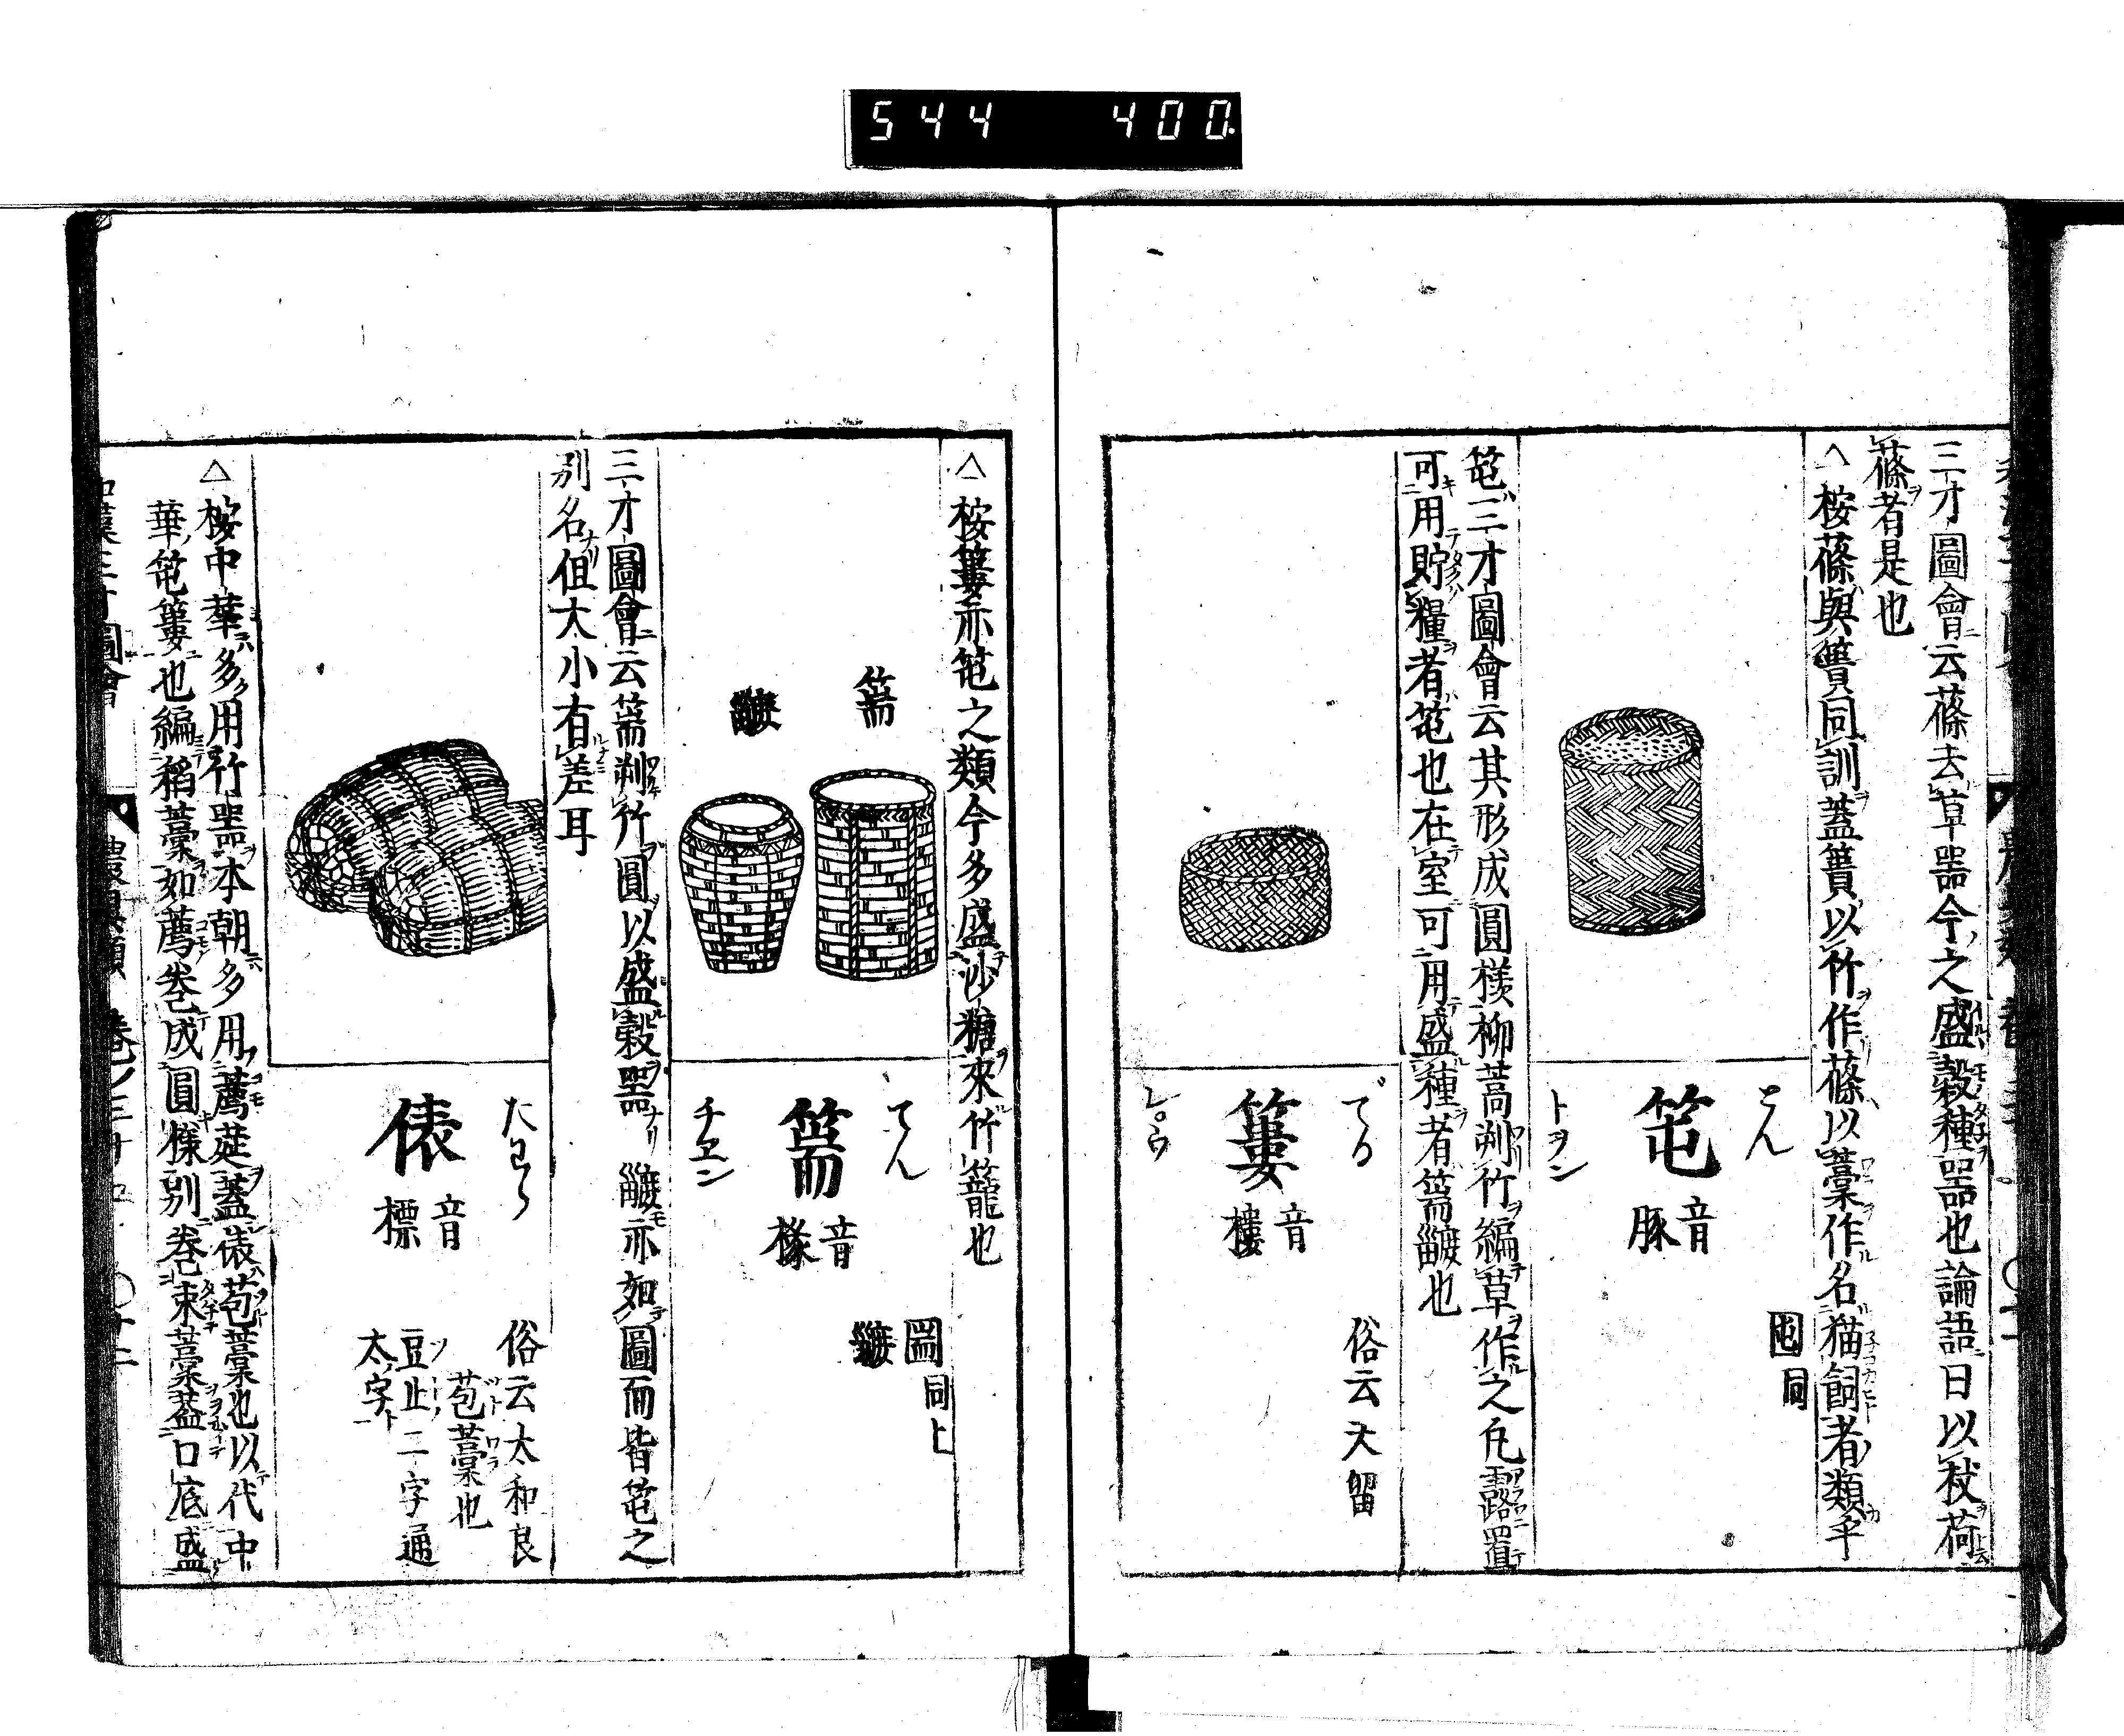 544 400
三才圖會云蓧去草器今之盛穀種器也論語曰以杖荷
蓧者是也
△桉蓧與簣同訓蓋簣以竹作蓧以藁作名猫飼者類乎
とん
笹
音豚
トヲン
同
笹三才圖會云其形成圓樣柳蒿剡竹編草作之凡露置
可用貯糧者笹也在室可用盛種者篅也
でる
簍
音樓
レ゚ウ
俗云天留
△桉簍亦笹之類今多盛沙糖來竹籠也
篅
てん
篅
音椽
チヱン
圌
同上
三才圖會云篅剡竹圓以盛穀器 亦如圖而皆笹之
別名但大小有差耳
たはら
俵
音標
俗云太和良
苞藁也
豆止二字通
太字
△桉中華多用竹器本朝多用薦莚蓋俵苞藁也以代中
華笹簍也編稻藁如薦卷成圓樣別卷束藁蓋口底盛